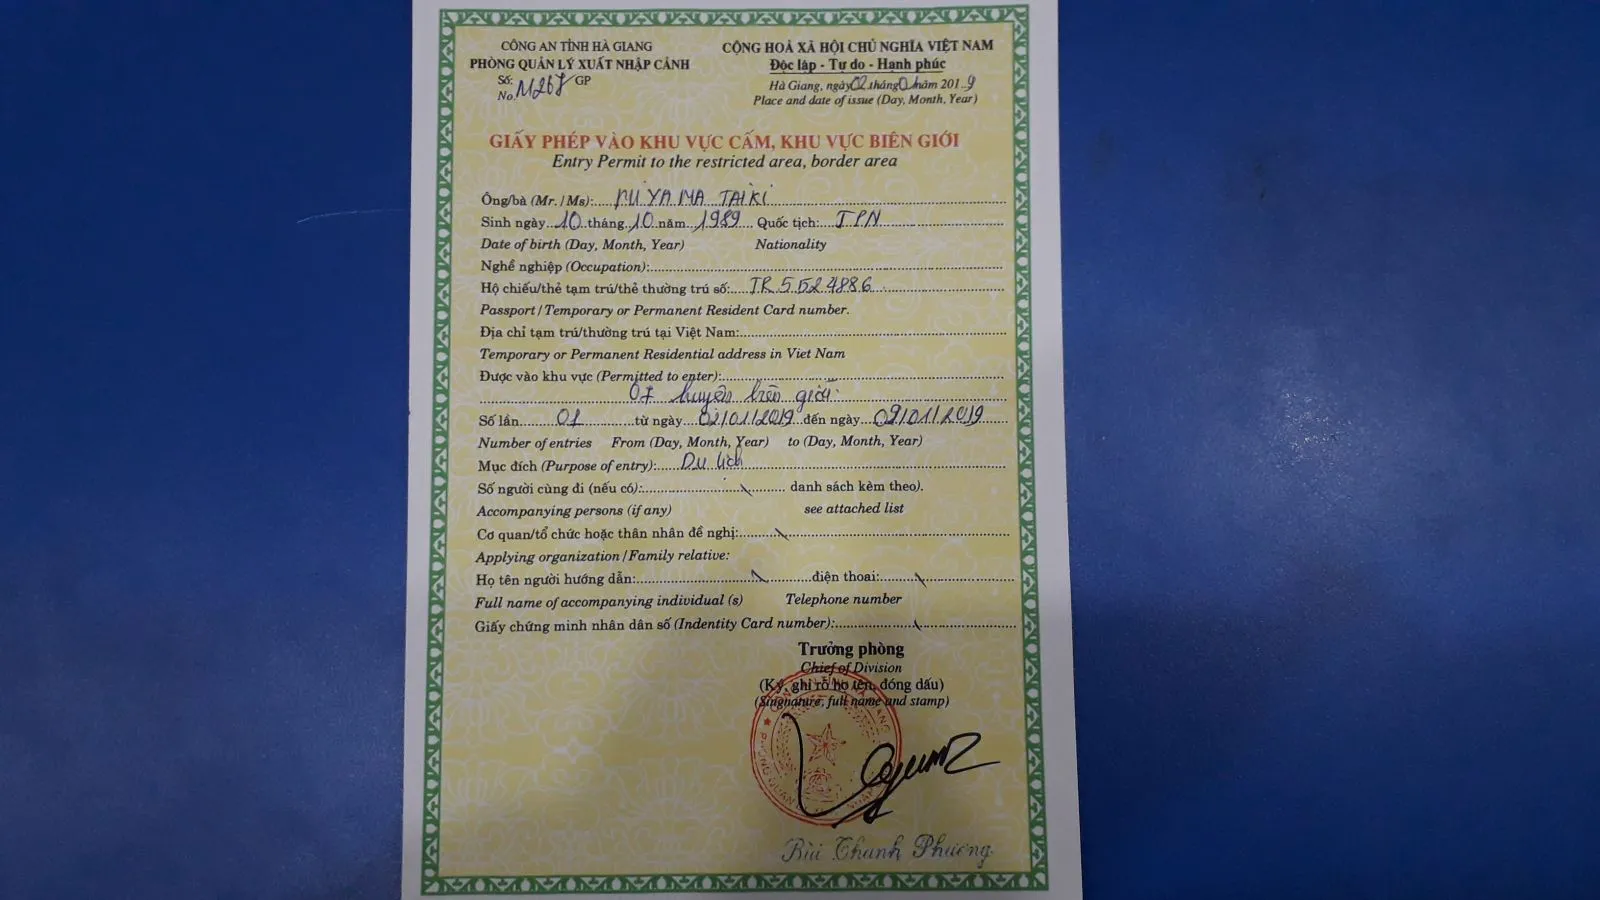 CÔNG AN TỈNH HÀ GIANG
PHÒNG QUẢN LÝ XUẤT NHẬP CẢNH
Số: GP
No.
CỘNG HOÀ XÃ HỘI CHỦ NGHĨA VIỆT NAM
Độc lập - Tự do - Hạnh phúc
Hà Giang, ngày 02 tháng 01 năm 2019
Place and date of issue (Day, Month, Year)
GIẤY PHÉP VÀO KHU VỰC CẤM, KHU VỰC BIÊN GIỚI
Entry Permit to the restricted area, border area
Ông/bà (Mr. / Ms): MIYAMA TAIKI
Sinh ngày 10 tháng 10 năm 1989 Quốc tịch: JPN
Date of birth (Day, Month, Year) Nationality
Nghề nghiệp (Occupation):
Hộ chiếu/thẻ tạm trú/thẻ thường trú số: TR 5524886
Passport / Temporary or Permanent Resident Card number.
Địa chỉ tạm trú/thường trú tại Việt Nam:
Temporary or Permanent Residential address in Viet Nam
Được vào khu vực (Permitted to enter):
07 huyện biên giới
Số lần 01 từ ngày 02/01/2019 đến ngày 09/01/2019
Number of entries From (Day, Month, Year) to (Day, Month, Year)
Mục đích (Purpose of entry): Du lịch
Số người cùng đi (nếu có): danh sách kèm theo).
Accompanying persons (if any) see attached list
Cơ quan/tổ chức hoặc thân nhân đề nghị:
Applying organization / Family relative:
Họ tên người hướng dẫn: điện thoai:
Full name of accompanying individual (s) Telephone number
Giấy chứng minh nhân dân số (Indentity Card number):
Trưởng phòng
Chief of Division
(Ký, ghi rõ họ tên, đóng dấu)
(Singnature, full name and stamp)
Bùi Thanh Phương